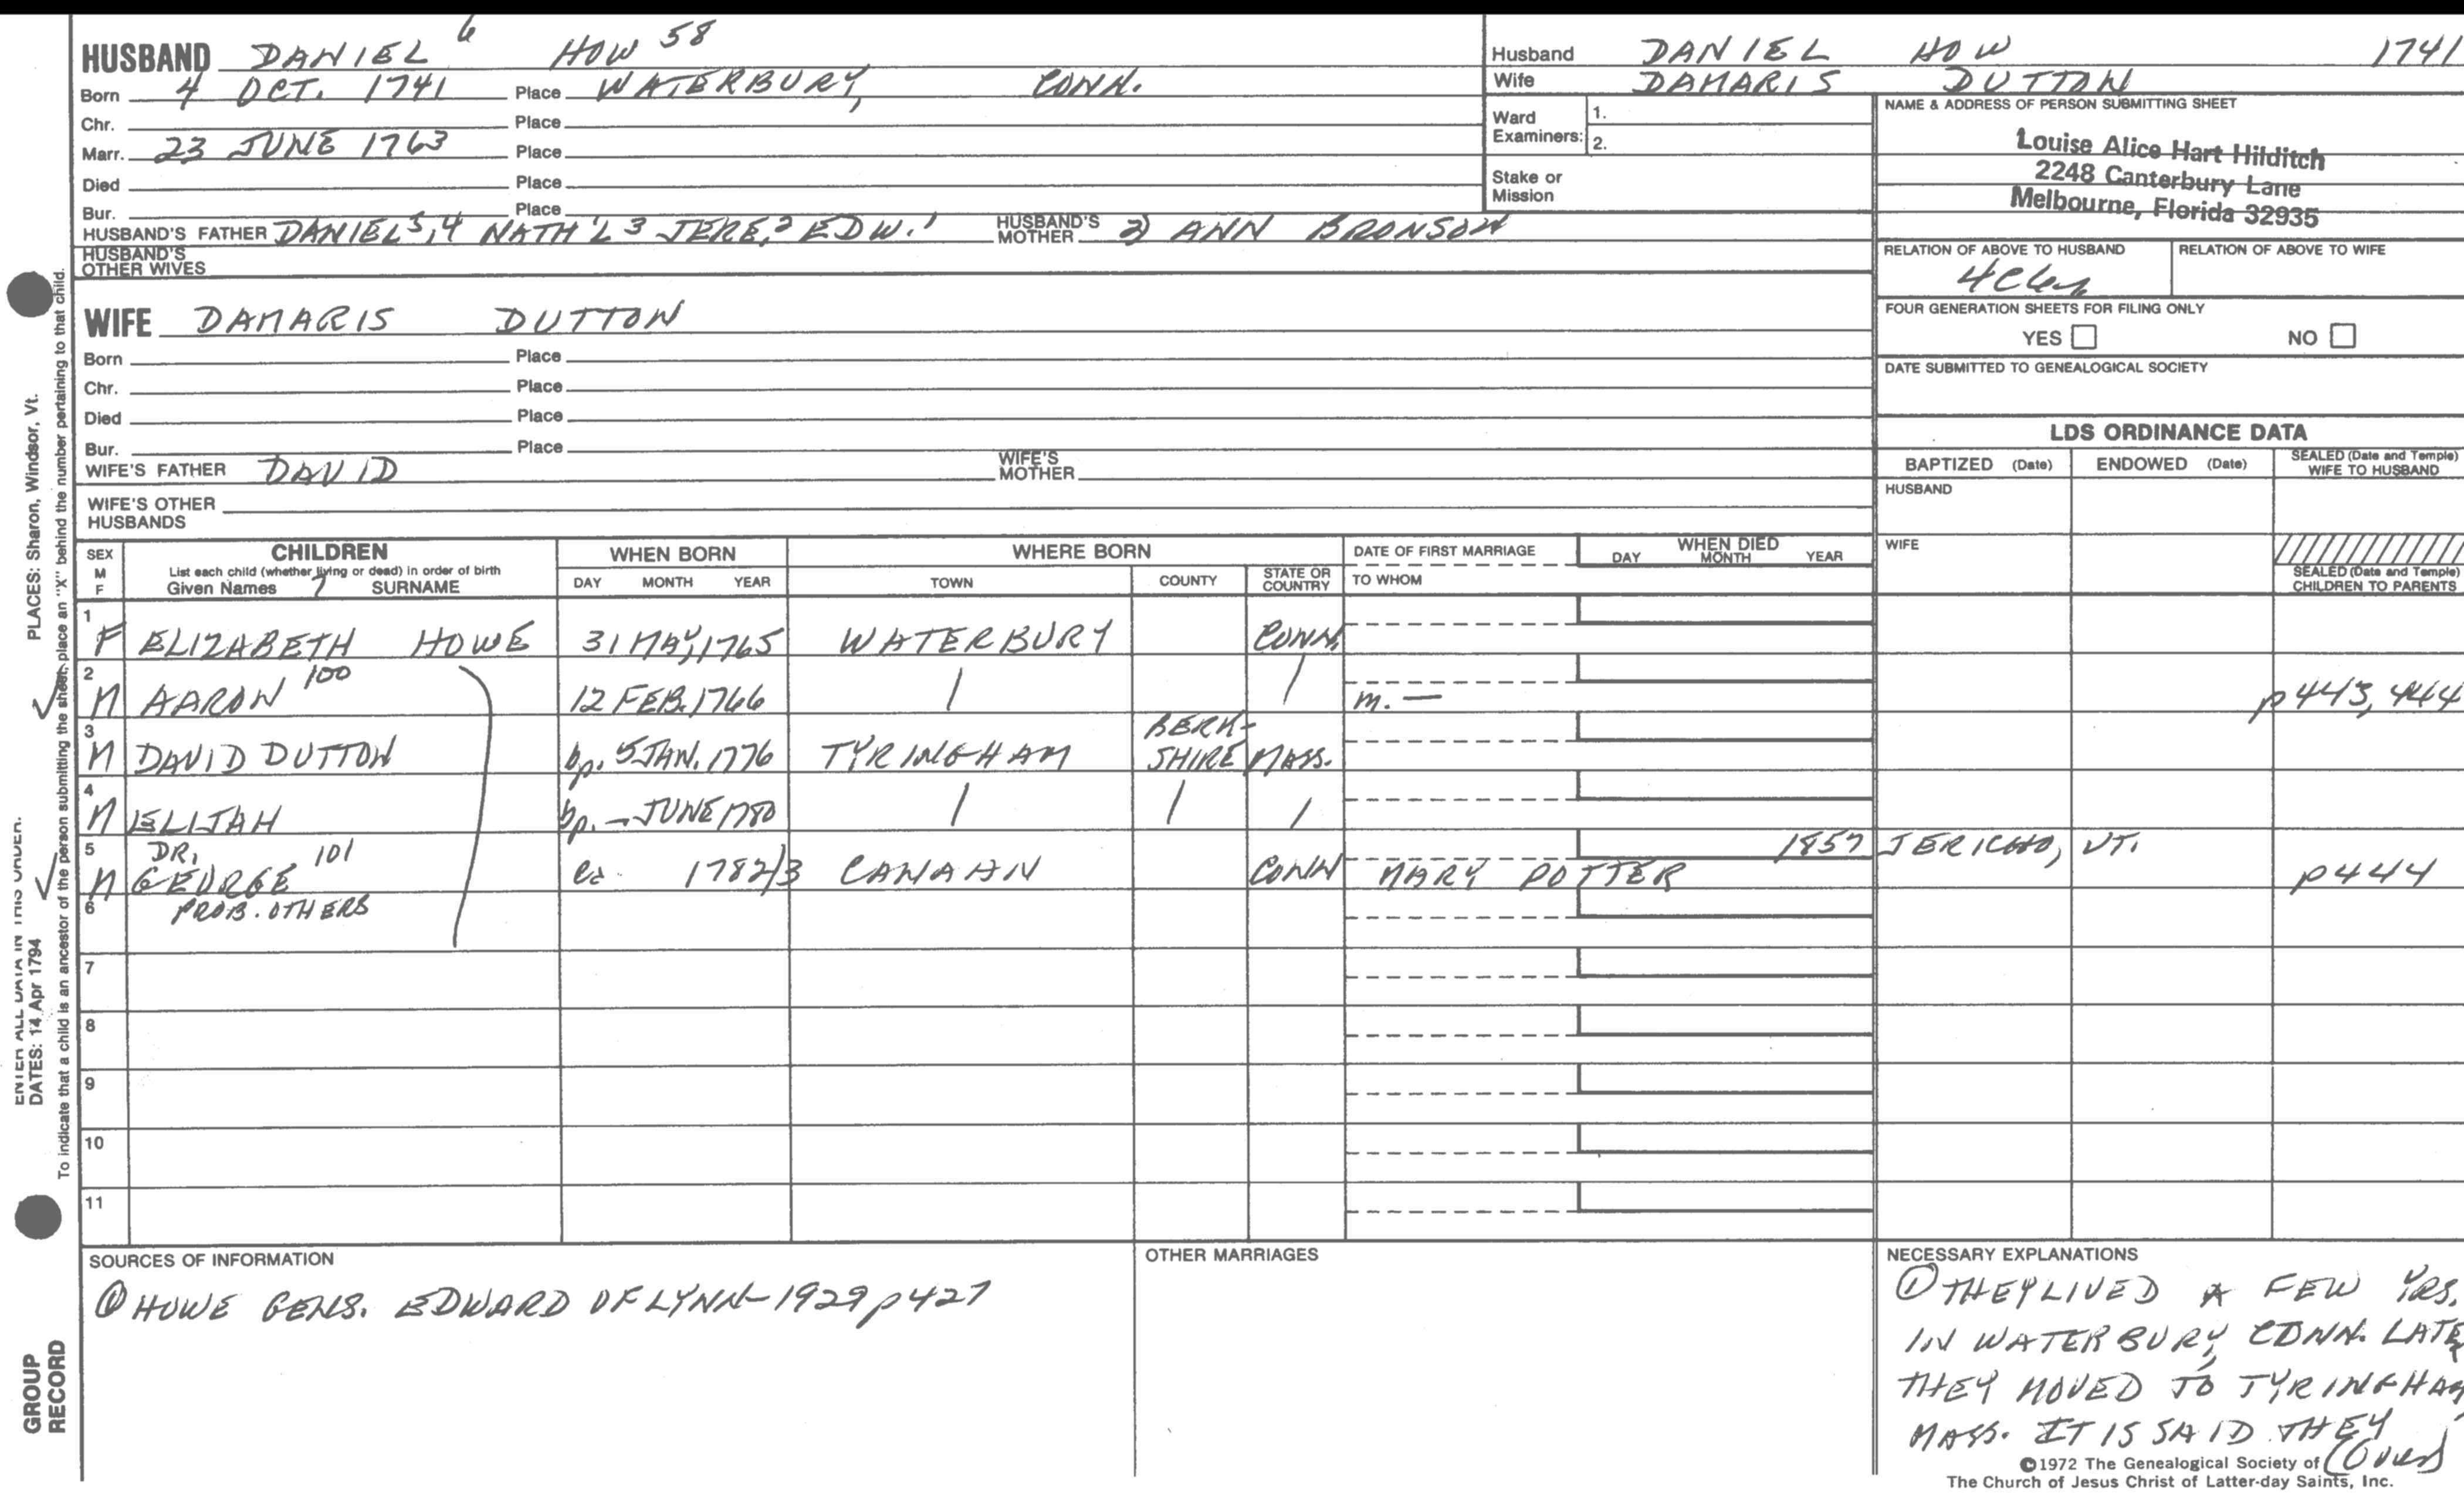 HUSBAND DANIEL 6 HOW 58
Born 4 OCT. 1741 Place WATERBURY, CONN.
Chr. Place
Marr. 23 JUNE 1763 Place
Died Place
Bur. Place
HUSBAND'S FATHER DANIEL 5,4 NATH'L 3 JERE, 2 EDW. 1 HUSBAND'S MOTHER 2) ANN BRONSON
HUSBAND'S OTHER WIVES
WIFE DAMARIS DUTTON
Born Place
Chr. Place
Died Place
Bur. Place
WIFE'S FATHER DAVID WIFE'S MOTHER
WIFE'S OTHER HUSBANDS
Husband DANIEL HOW 1741
Wife DAMARIS DUTTON
Ward Examiners: 1.
2.
Stake or Mission
NAME & ADDRESS OF PERSON SUBMITTING SHEET
Louise Alice Hart Hilditch
2248 Canterbury Lane
Melbourne, Florida 32935
RELATION OF ABOVE TO HUSBAND RELATION OF ABOVE TO WIFE
FOUR GENERATION SHEETS FOR FILING ONLY
YES NO
DATE SUBMITTED TO GENEALOGICAL SOCIETY
LDS ORDINANCE DATA
BAPTIZED (Date) ENDOWED (Date) SEALED (Date and Temple) WIFE TO HUSBAND
HUSBAND
WIFE
SEALED (Date and Temple) CHILDREN TO PARENTS
SEX M F CHILDREN WHEN BORN WHERE BORN DATE OF FIRST MARRIAGE WHEN DIED
List each child (whether living or dead) in order of birth
Given Names 7 SURNAME DAY MONTH YEAR TOWN COUNTY STATE OR COUNTRY TO WHOM DAY MONTH YEAR
1 F ELIZABETH HOWE 31 MAY, 1765 WATERBURY CONN.
2 M AARON 100 12 FEB. 1766 m. — p443, 444
3 M DAVID DUTTON bp. 5 JAN. 1776 TYRINGHAM BERK-SHIRE MASS.
4 M ELIJAH bp. — JUNE 1780
5 M DR. GEORGE 101 ca 1782/3 CANAAN CONN MARY POTTER 1857 JERICHO, VT. p444
6 PROB. OTHERS
7
8
9
10
11
SOURCES OF INFORMATION
① HOWE GENS. EDWARD OF LYNN-1929 p427
OTHER MARRIAGES
NECESSARY EXPLANATIONS
① THEY LIVED A FEW YRS.
IN WATERBURY, CONN. LATER
THEY MOVED TO TYRINGHAM,
MASS. IT IS SAID THEY
(over)
©1972 The Genealogical Society of
The Church of Jesus Christ of Latter-day Saints, Inc.
ENTER ALL DATA IN THIS ORDER.
DATES: 14 Apr 1794 PLACES: Sharon, Windsor, Vt.
To indicate that a child is an ancestor of the person submitting the sheet, place an "X" behind the number pertaining to that child.
GROUP
RECORD